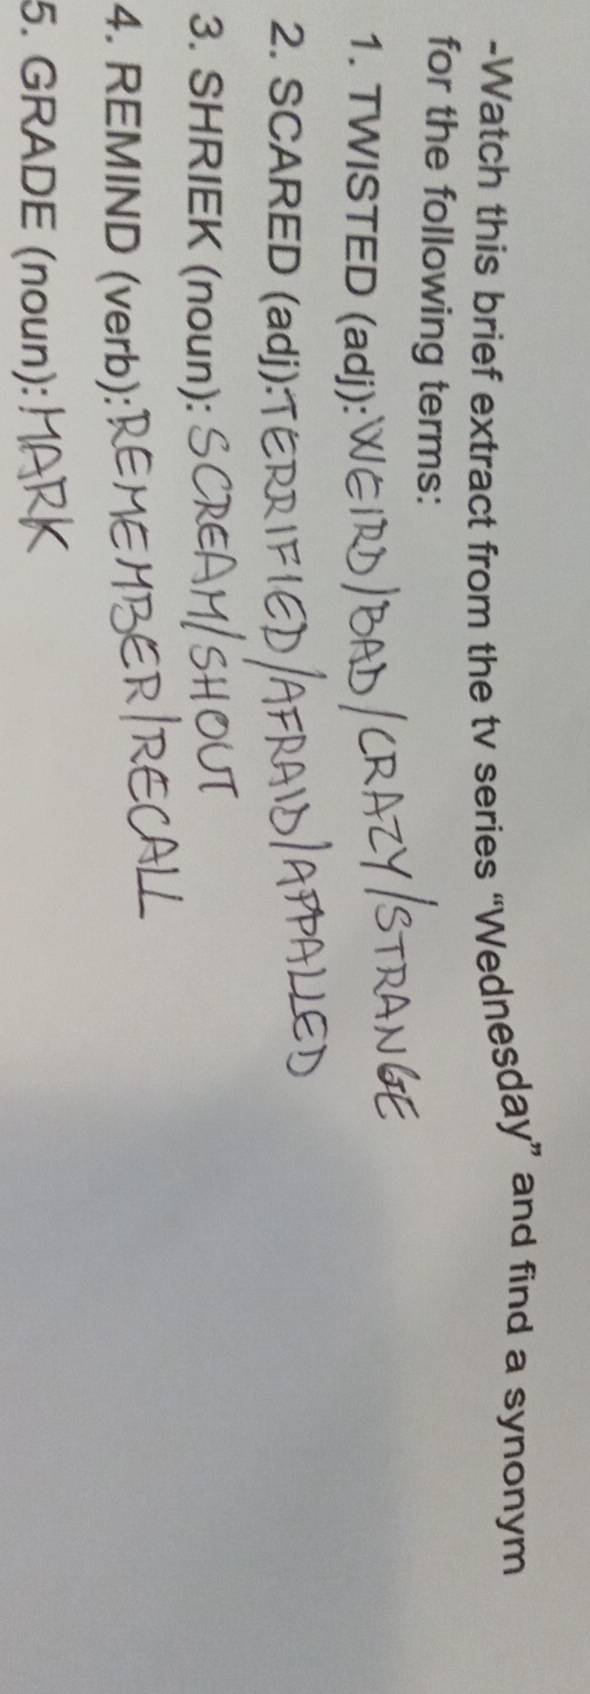 -Watch this brief extract from the tv series “Wednesday” and find a synonym
for the following terms:
1. TWISTED (adj): WEIRD/BAD/CRAZY/STRANGE
2. SCARED (adj): TERRIFIED/AFRAID/APPALLED
3. SHRIEK (noun): SCREAM/SHOUT
4. REMIND (verb): REMEMBER/RECALL
5. GRADE (noun): MARK